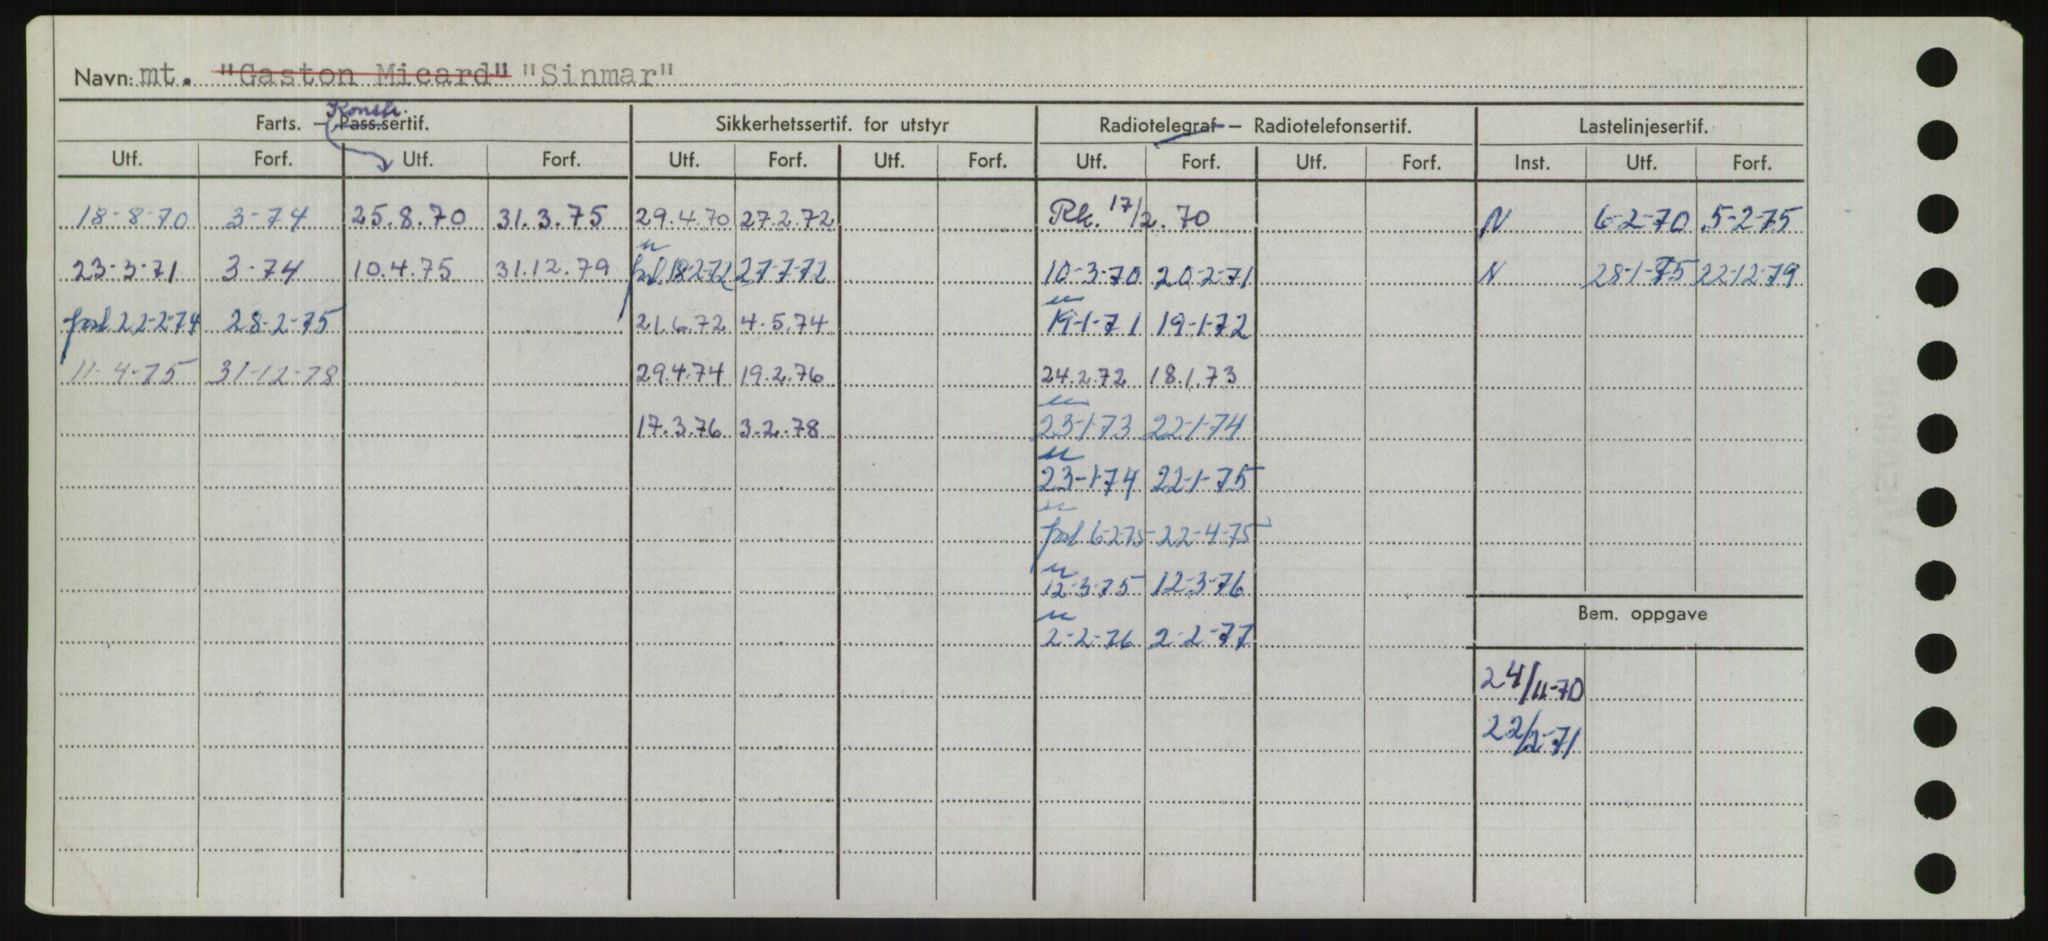 Navn: mt. "Gaston Micard" "Sinmar"
Konstr.
Farts. – Pass.sertif. Sikkerhetssertif. for utstyr Radiotelegraf – Radiotelefonsertif. Lastelinjesertif.
Utf. Forf. Utf. Forf. Utf. Forf. Utf. Forf. Utf. Forf. Utf. Forf. Inst. Utf. Forf.
18-8-70 3-74 25.8.70 31.3.75 29.4.70 27.2.72 Rk. 17/2.70 N 6-2-70 5-2-75
23-3-71 3-74 10.4.75 31.12.79 forl 18-2-72 27-7-72 10-3-70 20-2-71 N 28-1-75 22-12-79
forl 22-2-74 28-2-75 21.6.72 4.5.74 19-1-71 19-1-72
11-4-75 31-12-78 29.4.74 19.2.76 24.2.72 18.1.73
17.3.76 3.2.78 23-1-73 22-1-74
23-1-74 22-1-75
forl 6-2-75 22-4-75
12-3-75 12-3-76
Bem. oppgave
2-2-76 2-2-77
24/11-70
22/2-71